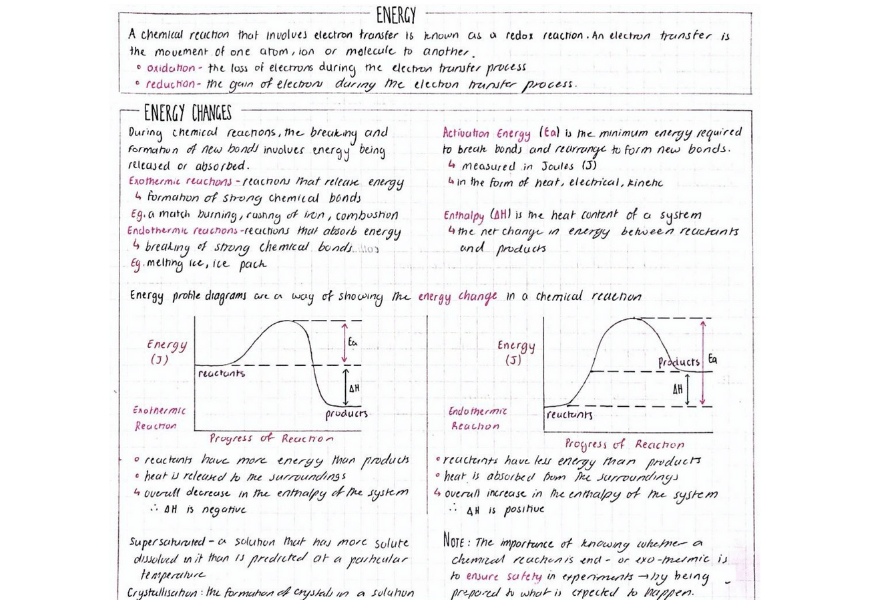 ENERGY
A chemical reaction that involves electron transfer is known as a redox reaction. An electron transfer is
the movement of one atom, ion or molecule to another.
oxidation - the loss of electrons during the electron transfer process
reduction - the gain of electrons during the electron transfer process.
ENERGY CHANGES
During chemical reactions, the breaking and
formation of new bonds involves energy being
released or absorbed.
Exothermic reactions - reactions that release energy
↳ formation of strong chemical bonds
Eg. a match burning, rusting of iron, combustion
Endothermic reactions - reactions that absorb energy
↳ breaking of strong chemical bonds
Eg. melting ice, ice pack
Activation Energy (Ea) is the minimum energy required
to break bonds and rearrange to form new bonds.
↳ measured in Joules (J)
↳ in the form of heat, electrical, kinetic
Enthalpy (ΔH) is the heat content of a system
↳ the net change in energy between reactants
and products
Energy profile diagrams are a way of showing the energy change in a chemical reaction
Energy
(J)
Ea
reactants
ΔH
products
Exothermic
Reaction
Progress of Reaction
Energy
(J)
products
Ea
ΔH
reactants
Endothermic
Reaction
Progress of Reaction
reactants have more energy than products
heat is released to the surroundings
↳ overall decrease in the enthalpy of the system
∴ ΔH is negative
reactants have less energy than products
heat is absorbed from the surroundings
↳ overall increase in the enthalpy of the system
∴ ΔH is positive
Supersaturated - a solution that has more solute
dissolved in it than is predicted at a particular
temperature
Crystallisation: the formation of crystals in a solution
NOTE: The importance of knowing whether a
chemical reaction is end- or exo-thermic is
to ensure safety in experiments → by being
prepared to what is expected to happen.